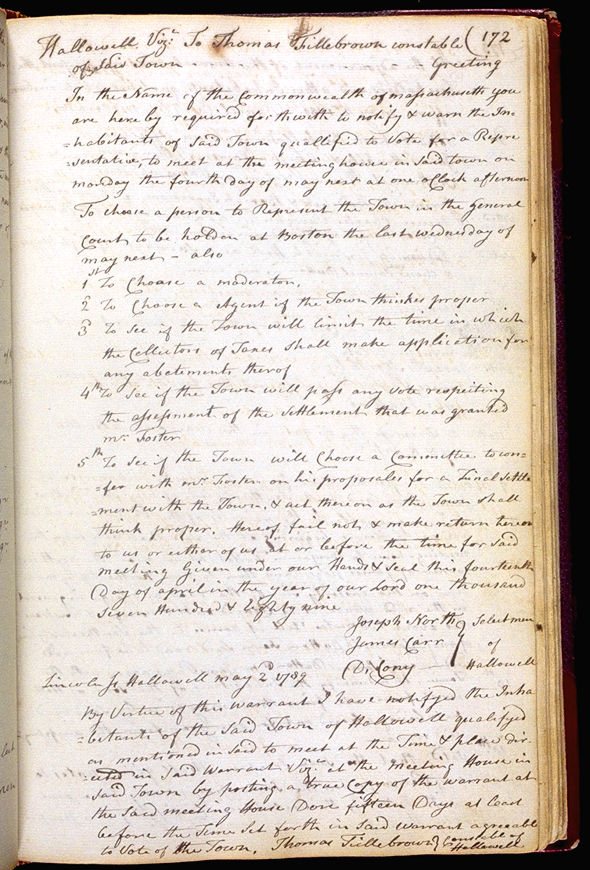 Hallowell Viz.t To Thomas Fillebrown constable ( 172
of Said Town Greeting
In the Name of the Commonwealth of massachusetts you
are here by required forthwith to notify & warn the In-
=habitants of Said Town quallified to Vote for a Repre
=sentative, to meet at the meeting house in said town on
monday the fourth day of may next at one oClock afternoon
To choose a person to Represent the Town in the general
Court to be holden at Boston the last wednesday of
may next – also
1st To Choose a moderator,
2d To Choose a Agent if the Town thinkes proper
3d To See if the Town will limit the time in which
the Collectors of Taxes Shall make application for
any abatements therof
4th To See if the Town will pass any vote respecting
the assessment of the settlement that was granted
mr. Foster
5th To See if the Town will Choose a Committee to con-
=fer with mr. Foster on his proposales for a Final Settle
=ment with the Town, & act thereon as the Town Shall
think proper. Hereof fail not & make return hereon
to us or either of us at or before the time for said
meeting Given under our Hands & Seal this fourteenth
Day of april in the year of our Lord one thousand
Seven Hundred & Eighty nine
Joseph North } Selectmen
James Carr } of
D. Cony } Hallowell
Lincoln Ss Hallowell may 2d 1789
By Virtue of this warrant I have notifyd the Inha
=bitants of the Said Town of Hallowell qualifyd
as mentioned in Said to meet at the Time & place dir-
=ected in Said Warrant Viz.t at the meeting House in
Said Town by posting a true Copy of the warrant at
the Said meeting House Dore fifteen Days at least
before the Time Set forth in Said warrant agreeable
to Vote of the Town. Thomas Fillebrown } Constable of
Hallowell